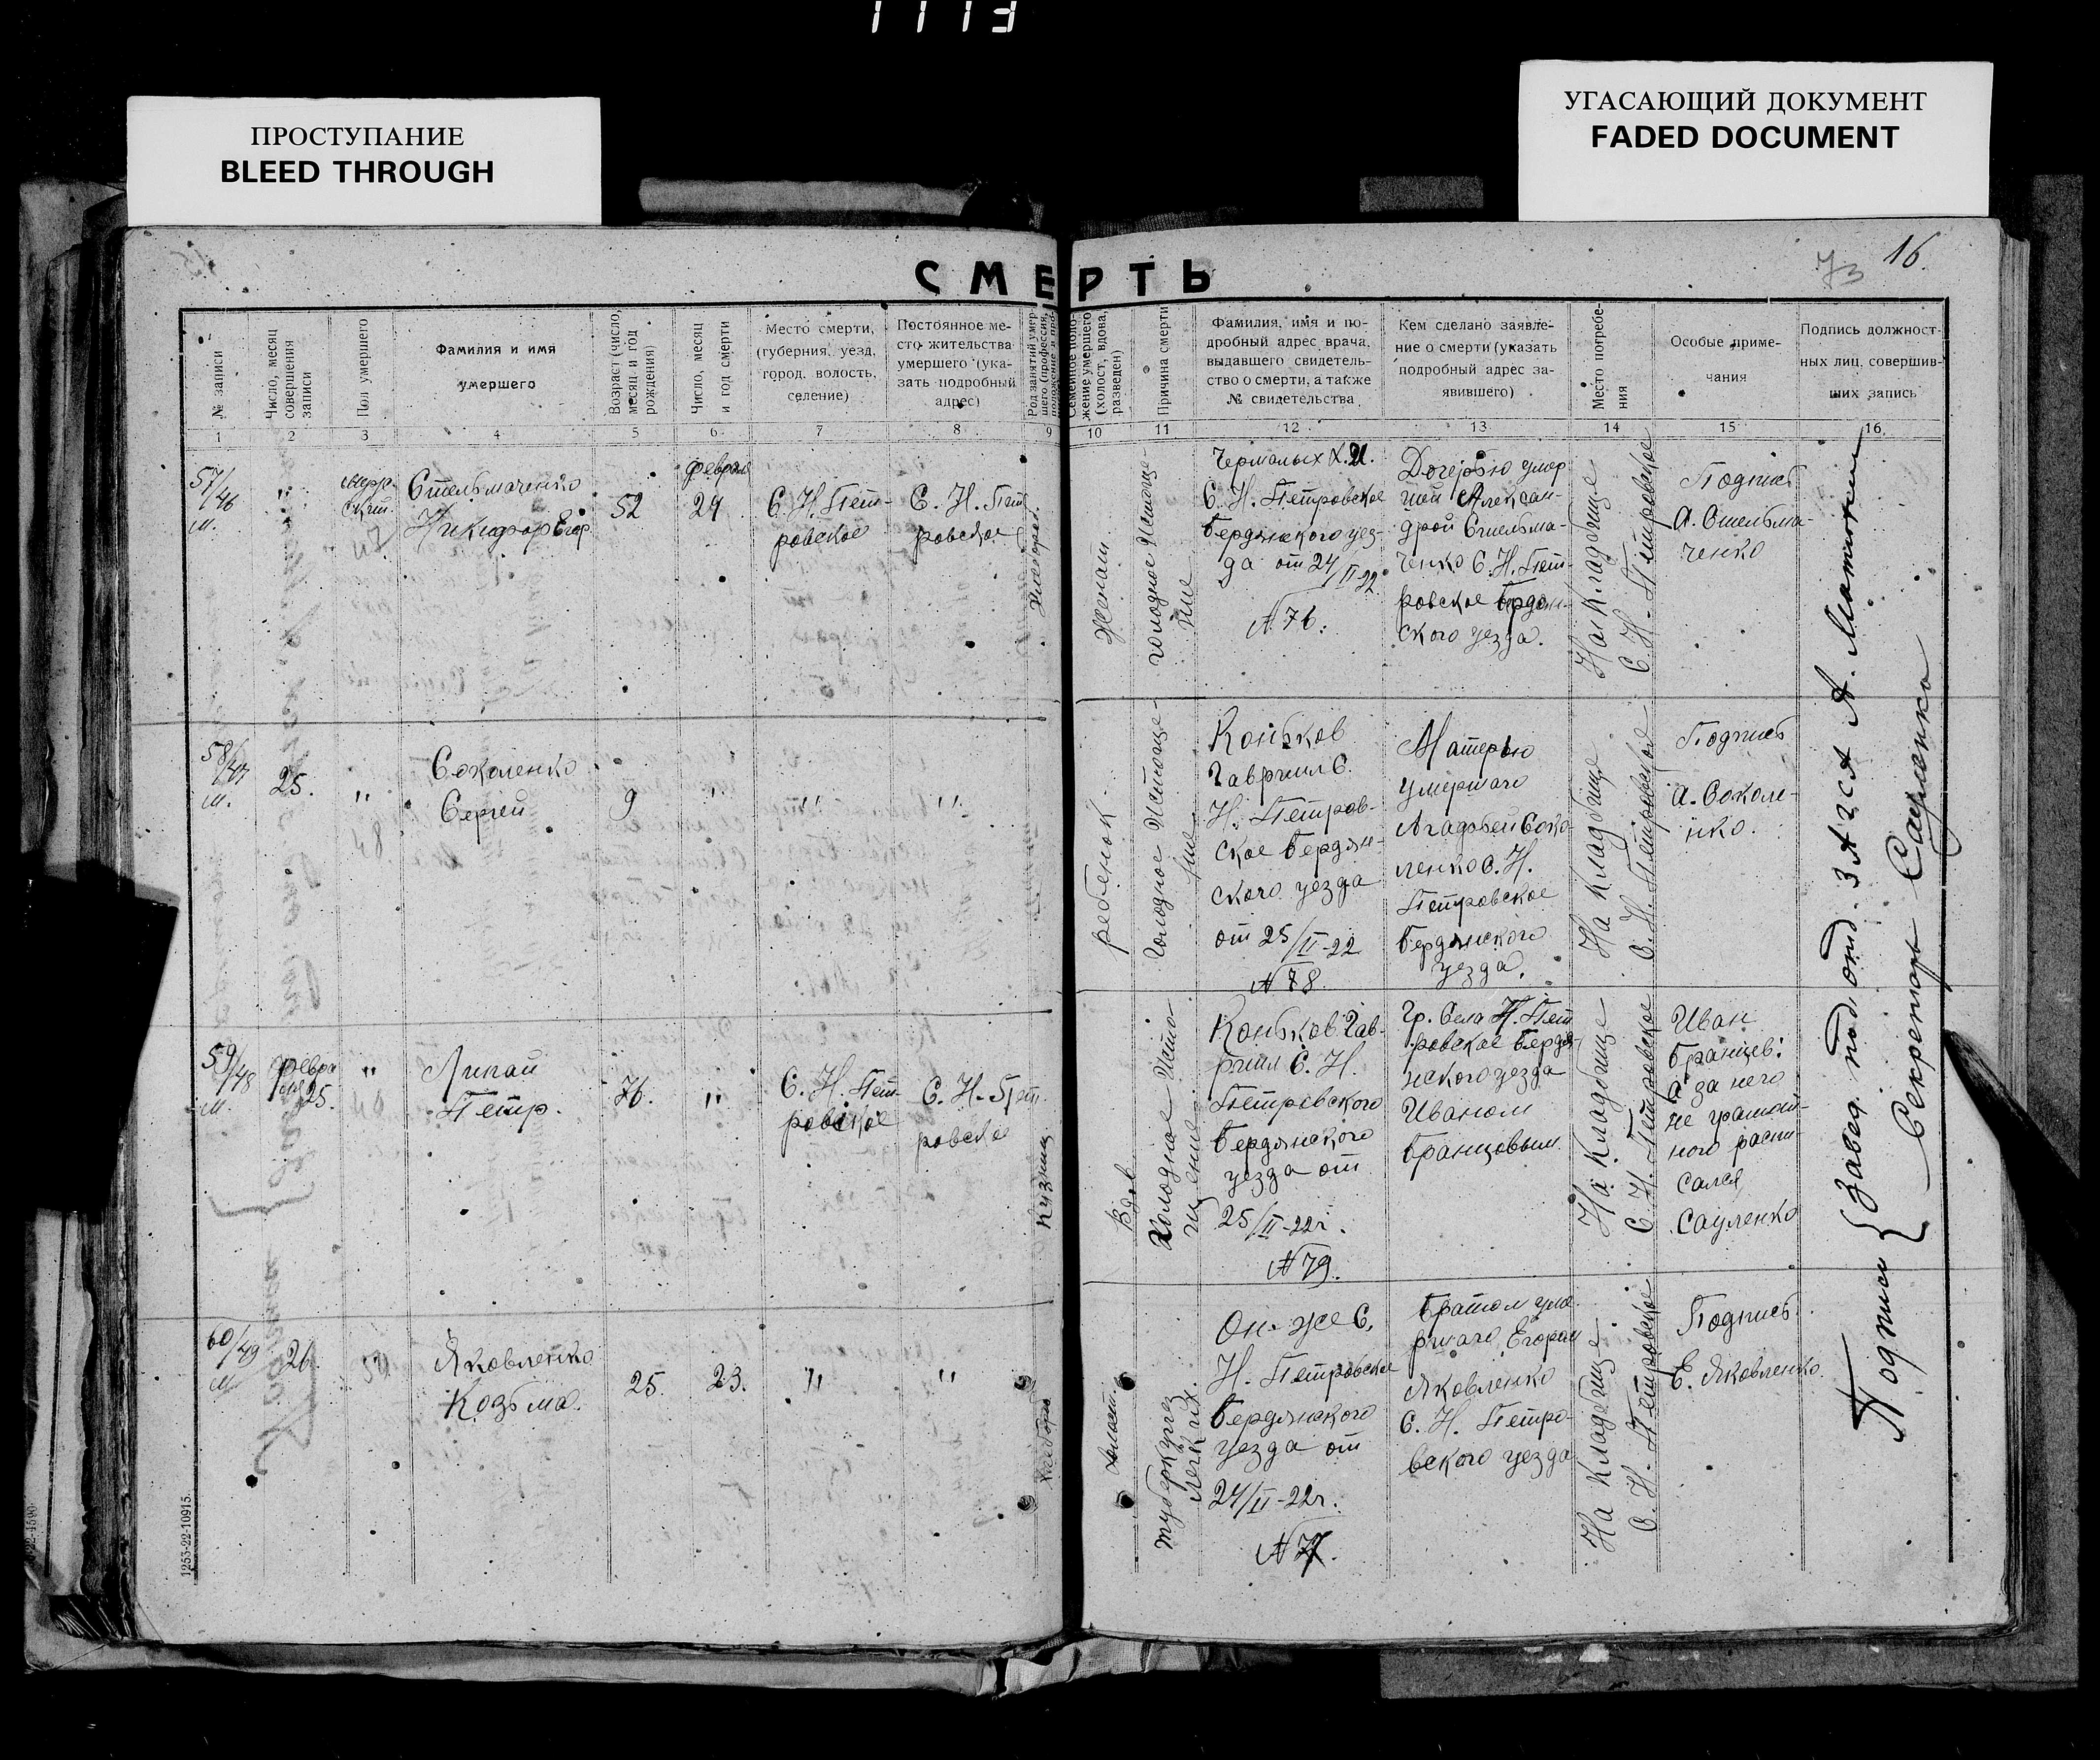 1113
ПРОСТУПАНИЕ
BLEED THROUGH
УГАСАЮЩИЙ ДОКУМЕНТ
FADED DOCUMENT
73
16.
СМЕРТЬ
№ записи
Число, месяц
совершения
записи
Пол умершего
Фамилия и имя
умершего
Возраст (число,
месяц и год
рождения)
Число, месяц
и год смерти
Место смерти,
(губерния, уезд,
город, волость,
селение)
Постоянное ме-
сто жительства
умершего (ука-
зать подробный
адрес)
Род занятий умер-
шего (профессия,
Семейное поло-
жение умершего
(холост, вдова,
разведен)
Причина смерти
Фамилия, имя и по-
дробный адрес врача,
выдавшего свидетель-
ство о смерти, а также
№ свидетельства
Кем сделано заявле-
ние о смерти (указать
подробный адрес за-
явившего)
Место погребе-
ния
Особые приме-
чания
Подпись должност-
ных лиц, совершив-
ших запись
1 2 3 4 5 6 7 8 9 10 11 12 13 14 15 16
57/46
м.
"
ской
Стельмаченко
Никифор Егор.
52
февраля
24
С. Н. Пет-
ровское
С. Н. Пет
ровское
Хлебороб.
Женат
голодное истоще-
ние
Чермалых Х. И.
С. Н. Петровское
Бердянского уез-
да от 24/II-22
№ 76.
Дочерью умер
шей Алексан-
дрой Стельма-
ченко С. Н. Пет-
ровское Бердян-
ского уезда.
На кладбище
С. Н. Петровское
Подпись
А. Стельма-
ченко
58/47
м.
25.
"
Соколенко
Сергей
9
"
"
"
ребенок
Голодное истоще-
ние
Коньков
Гавриил С.
Н. Петров-
ское Бердян-
ского уезда
от 25/II-22
№ 78.
Матерью
умершаго
Агафьей Соко
ленко С. Н.
Петровское
Бердянского
уезда.
На кладбище
С. Н. Петровское
Подпись
А. Соколе-
нко.
59/48
м.
февра
ля 25.
"
Липай
Петр.
76.
"
С. Н. Пет-
ровское
С. Н. Пет
ровское
Кузнец
Вдов
Голодное исто-
щение
Коньков Гав-
риил С. Н.
Петровского
Бердянского
уезда от
25/II-22г.
№ 79.
Гр. Села Н. Пет
ровское Бердя-
нского уезда
Иваном
Бранцовым.
На кладбище
С. Н. Петровское
Иван
Бранцев:
а за него
не грамот-
ного распи-
сался
Сауленко
60/49
м
26.
Яковленко
Козьма.
25.
23.
"
"
Хлебороб
Холост.
туберкулез
легких.
Он-же С.
Н. Петровское
Бердянского
уезда от
24/II-22г.
Братом уме
ршаго Егором
Яковленко
С. Н. Петро-
вского уезда
На кладбище
С. Н. Петровское
Подпись
Е. Яковленко.
Подписи { Завед. под. отд. ЗАГСА А.
Секретарь Сауленко
1253-22-10915.